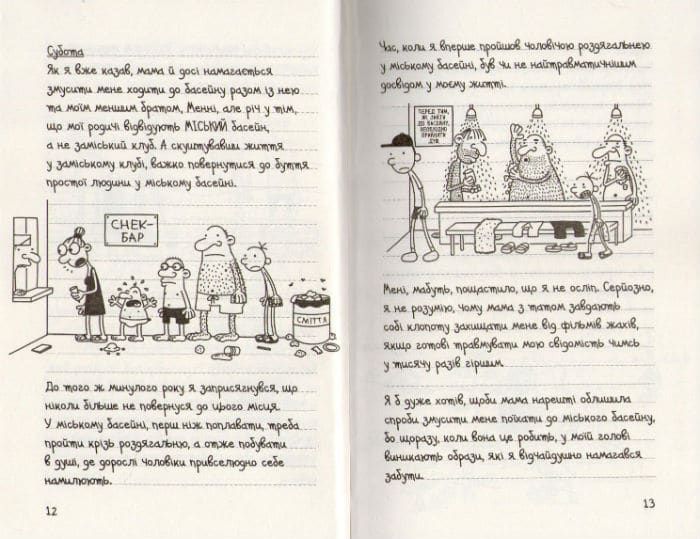 Субота
Як я вже казав, мама й досі намагається
змусити мене ходити до басейну разом із нею
та моїм меншим братом, Менні, але річ у тім,
що мої родичі відвідують МІСЬКИЙ басейн,
а не заміський клуб. А скуштувавши життя
у заміському клубі, важко повернутися до буття
простої людини у міському басейні.
СНЕК-
БАР
СМІТТЯ
До того ж минулого року я заприсягнувся, що
ніколи більше не повернуся до цього місця.
У міському басейні, перш ніж поплавати, треба
пройти крізь роздягальню, а отже побувати
в душі, де дорослі чоловіки привселюдно себе
намилюють.
12
Час, коли я вперше пройшов чоловічою роздягальнею
у міському басейні, був чи не найтравматичнішим
досвідом у моєму житті.
ПЕРЕД ТИМ,
ЯК ЗАЙТИ
ДО БАСЕЙНУ,
НЕОБХІДНО
ПРИЙНЯТИ
ДУШ
Мені, мабуть, пощастило, що я не осліп. Серйозно,
я не розумію, чому мама з татом завдають
собі клопоту захищати мене від фільмів жахів,
якщо готові травмувати мою свідомість чимсь
у тисячу разів гіршим.
Я б дуже хотів, щоби мама нарешті облишила
спроби змусити мене поїхати до міського басейну,
бо щоразу, коли вона це робить, у моїй голові
виникають образи, які я відчайдушно намагався
забути.
13